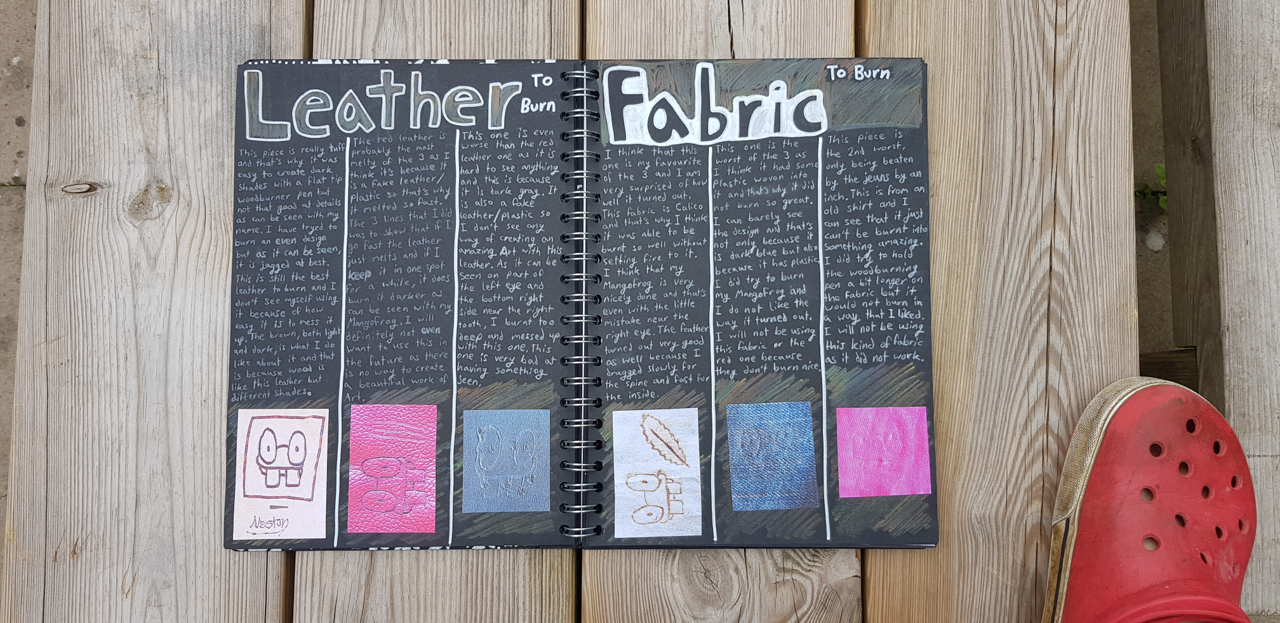 Leather
To
Burn
This piece is really tuff
and that's why it was
easy to create dark
shades with a flat tip
woodburner pen but
not that good at details
as can be seen with my
name. I have tryed to
burn an even design
but as it can be seen,
it is jagged at best.
This is still the best
leather to burn and I
don't see myself using
it because of how
easy it is to mess it
up. The brown, both light
and dark, is what I do
like about it and that
is because wood is
like this leather but
different shades.
The red leather is
probably the most
melty of the 3 as I
think it's because it
is a fake leather/
Plastic so that's why
it melted so fast.
The 3 lines that I did
was to show that if I
go fast the leather
just melts and if I
keep it in one spot
for a while, it does
burn it darker as
can be seen with my
MangoFrog. I will
definitely not even
want to use this in
the future as there
is no way to create
a beautiful work of
Art.
This one is even
worse than the red
leather one as it is
hard to see anything
and this is because
it is dark gray. It
is also a fake
leather/plastic so
I don't see any
way of creating an
amazing Art with this
leather. As it can be
seen on part of
the left eye and
the bottom right
side near the right
tooth, I burnt too
deep and messed up
with this one. This
one is very bad at
having something
seen.
Neston
Fabric
To Burn
I think that this
one is my favourite
of the 3 and I am
very surprised of how
well it turned out.
This fabric is Calico
and that's why I think
it was able to be
burnt so well without
setting fire to it.
I think that my
MangoFrog is very
nicely done and that's
even with the little
mistake near the
right eye. The feather
turned out very good
as well because I
dragged slowly for
the spine and fast for
the inside.
This one is the
worst of the 3 as
I think it had some
Plastic woven into
it and that's why it did
not burn so great.
I can barely see
the design and that's
not only because it
is dark blue but also
because it has plastic.
I did try to burn
my MangoFrog and
I do not like the
way it turned out.
I will not be using
this fabric or the
red one because
they don't burn nice.
This piece is
the 2nd worst,
only being beaten
by the jeans by an
inch. This is from an
old shirt and I
can see that it just
can't be burnt into
something amazing.
I did try to hold
the woodburning
pen a bit longer on
the fabric but it
would not burn in
a way that I liked.
I will not be using
this kind of fabric
as it did not work.